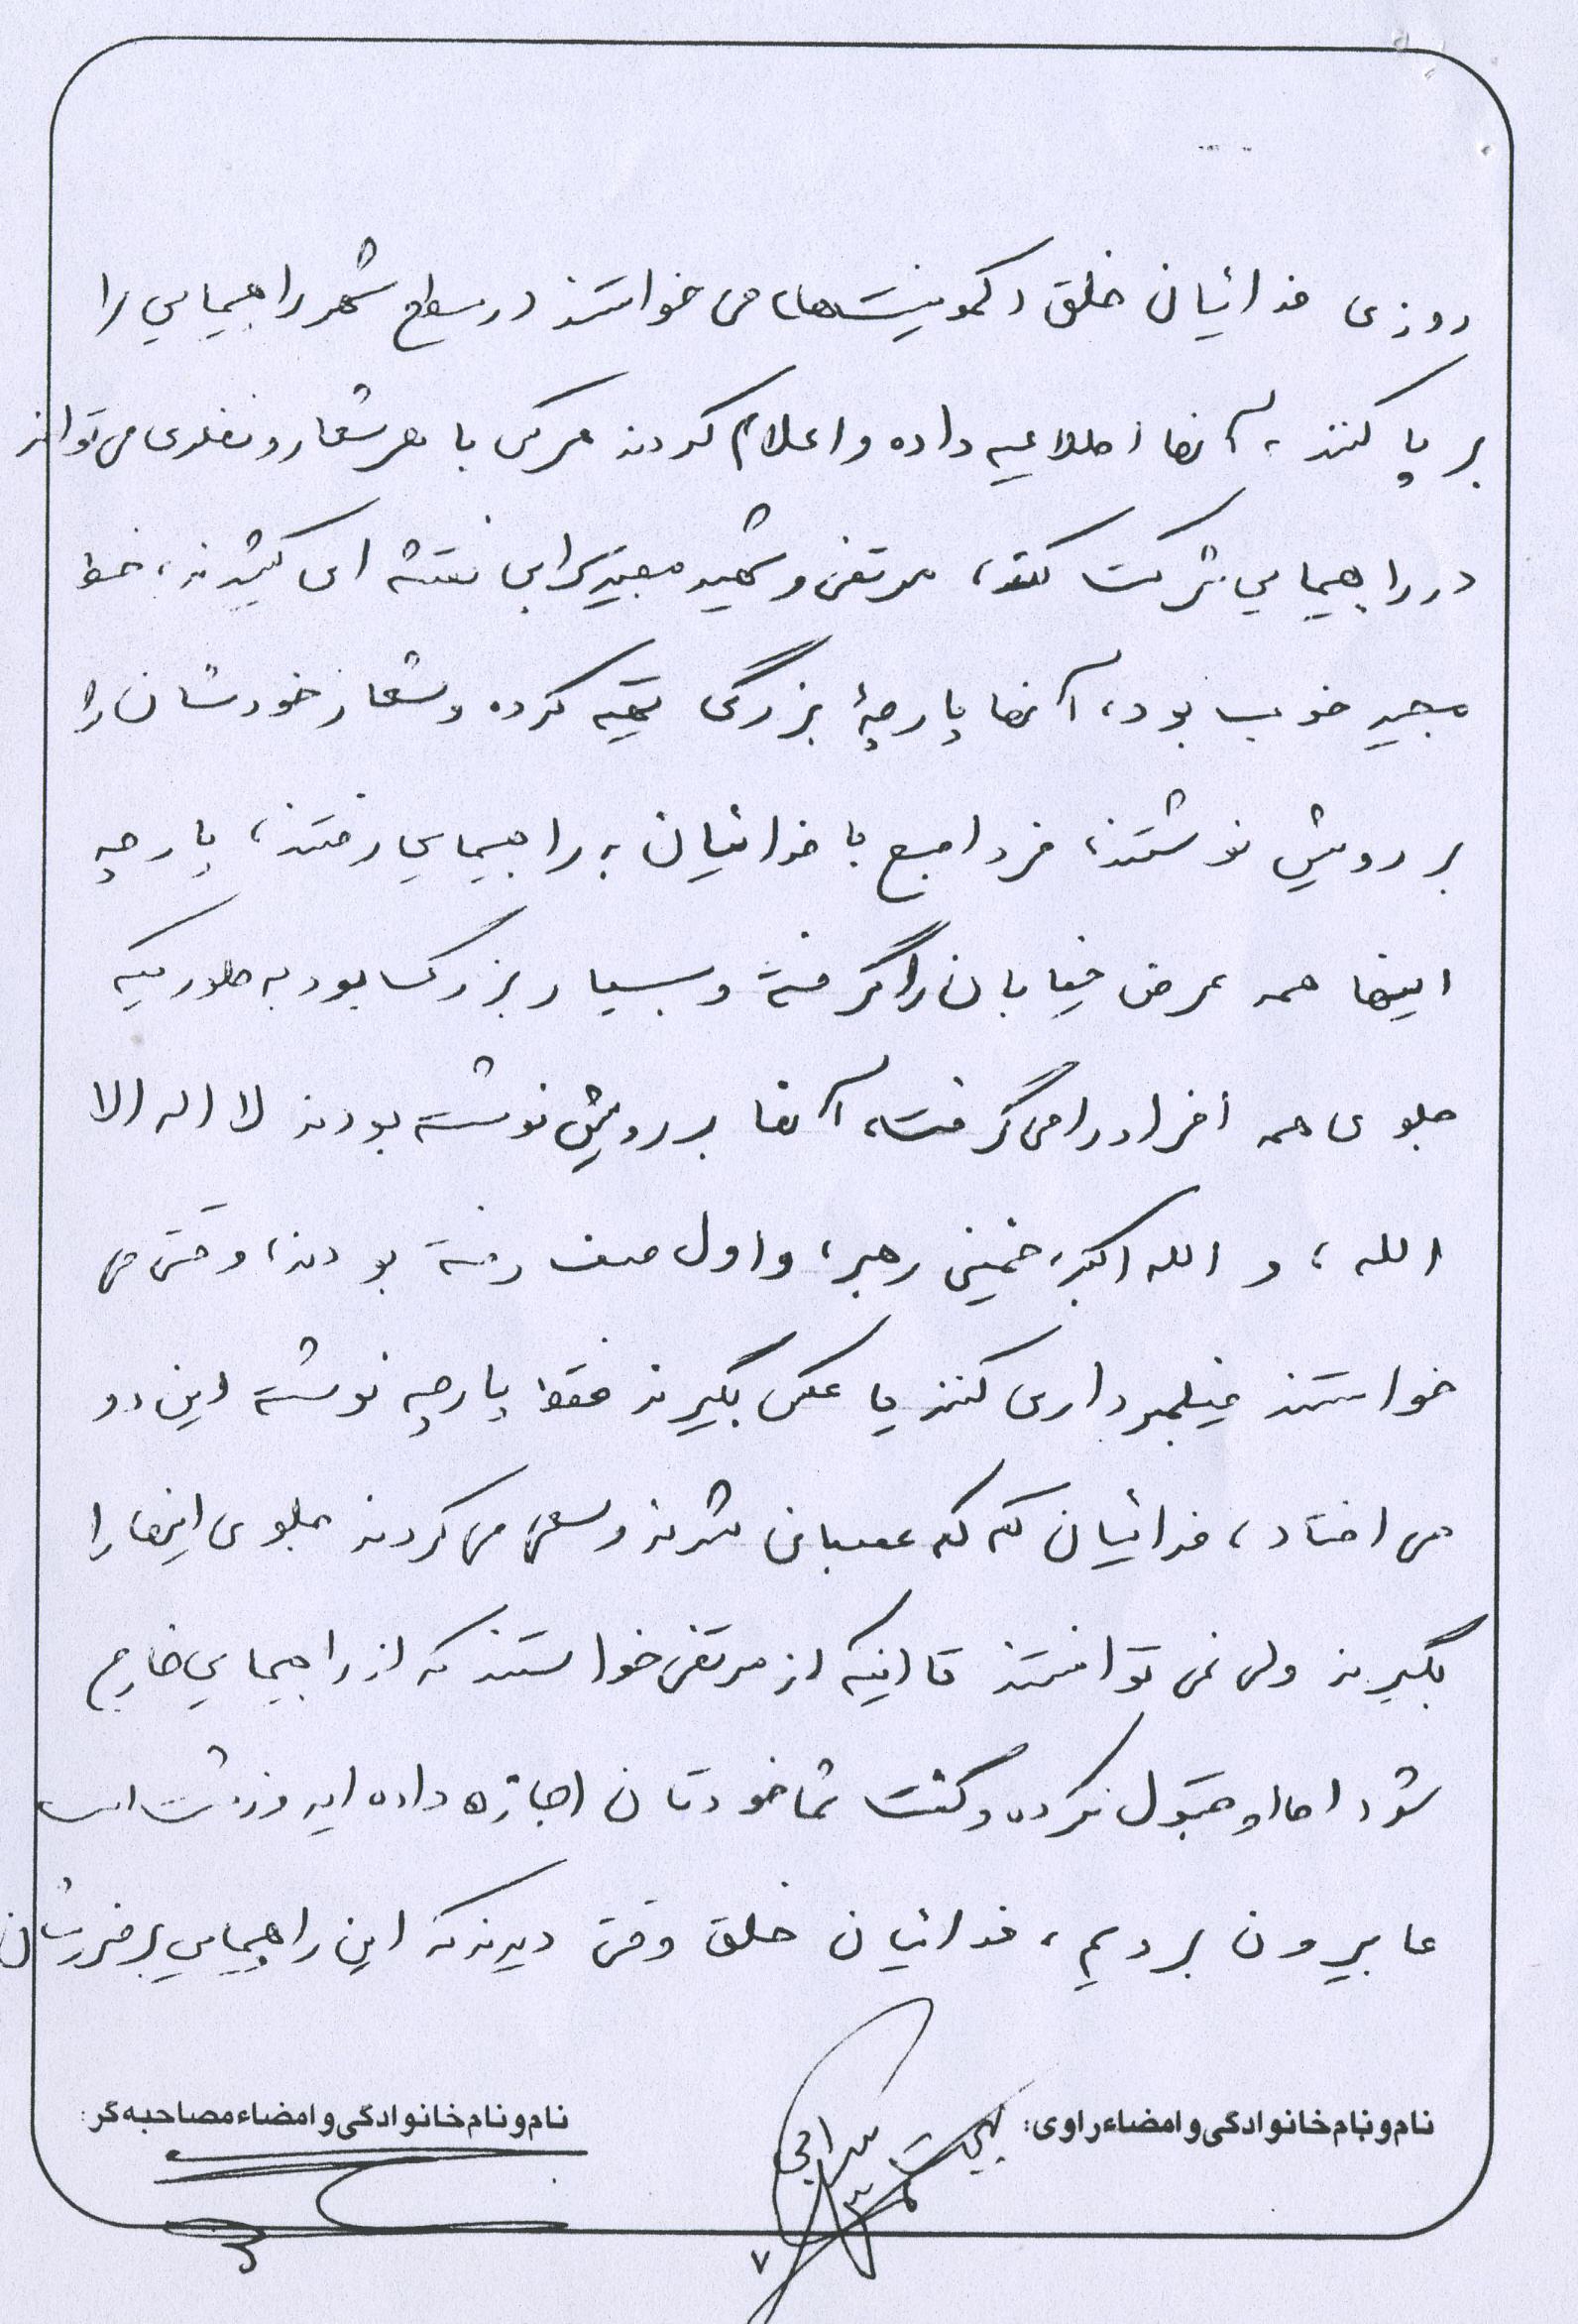 روزی فدائیان خلق و کمونیست‌ها، می خواستند در سطح شهر راهپیمایی را
بر پا کنند، آنها اطلاعیه داده و اعلام کردند هر کس با هر شعار و تفکری می تواند
در راهپیمایی شرکت کند، مرتضی و شهید مجید ترابی نقشه ای کشیدند، خط
مجید خوب بود، آنها پارچهٔ بزرگی تهیه کرده و شعار خودشان را
بر رویش نوشتند، فردا صبح با فدائیان به راهپیمایی رفتند، پارچه
اینها همه عرض خیابان را گرفته و بسیار بزرگ بود به طوریکه
جلوی همه افراد را می گرفت، آنها بر رویش نوشته بودند لا اله الا
الله، و الله اکبر، خمینی رهبر، و اول صف رفته بودند، وقتی می
خواستند فیلمبرداری کنند یا عکس بگیرند فقط پارچه نوشته این دو
می افتاد، فدائیان که که عصبانی شدند و سعی می کردند جلوی اینها را
بگیرند ولی نمی توانستند تا اینکه از مرتضی خواستند که از راهپیمایی خارج
شود اما او قبول نکرده و گفت شما خودتان اجازه داده اید و زشت است
ما بیرون برویم، فدائیان خلق وقتی دیدند که این راهپیمایی بر ضررشان
نام و نام خانوادگی و امضاء راوی:
نام و نام خانوادگی و امضاء مصاحبه گر:
۷